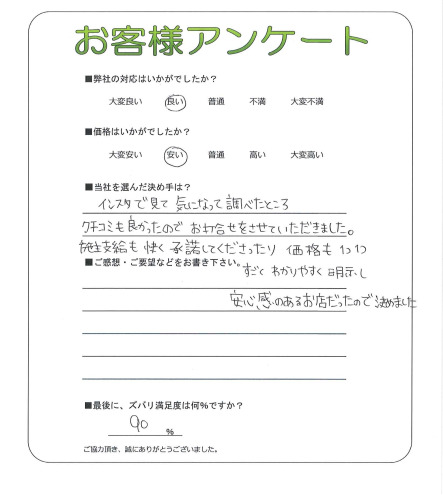 お客様アンケート
■弊社の対応はいかがでしたか？
大変良い 良い 普通 不満 大変不満
■価格はいかがでしたか？
大変安い 安い 普通 高い 大変高い
■当社を選んだ決め手は？
インスタで見て 気になって 調べたところ
クチコミも良かったので お問合せをさせていただきました。
施主支給も 快く 承諾してくださったり 価格も 1つ1つ
■ご感想・ご要望などをお書き下さい。
すごく わかりやすく 明示し
安心感のあるお店だったので 決めました
■最後に、ズバリ満足度は何％ですか？
90 %
ご協力頂き、誠にありがとうございました。